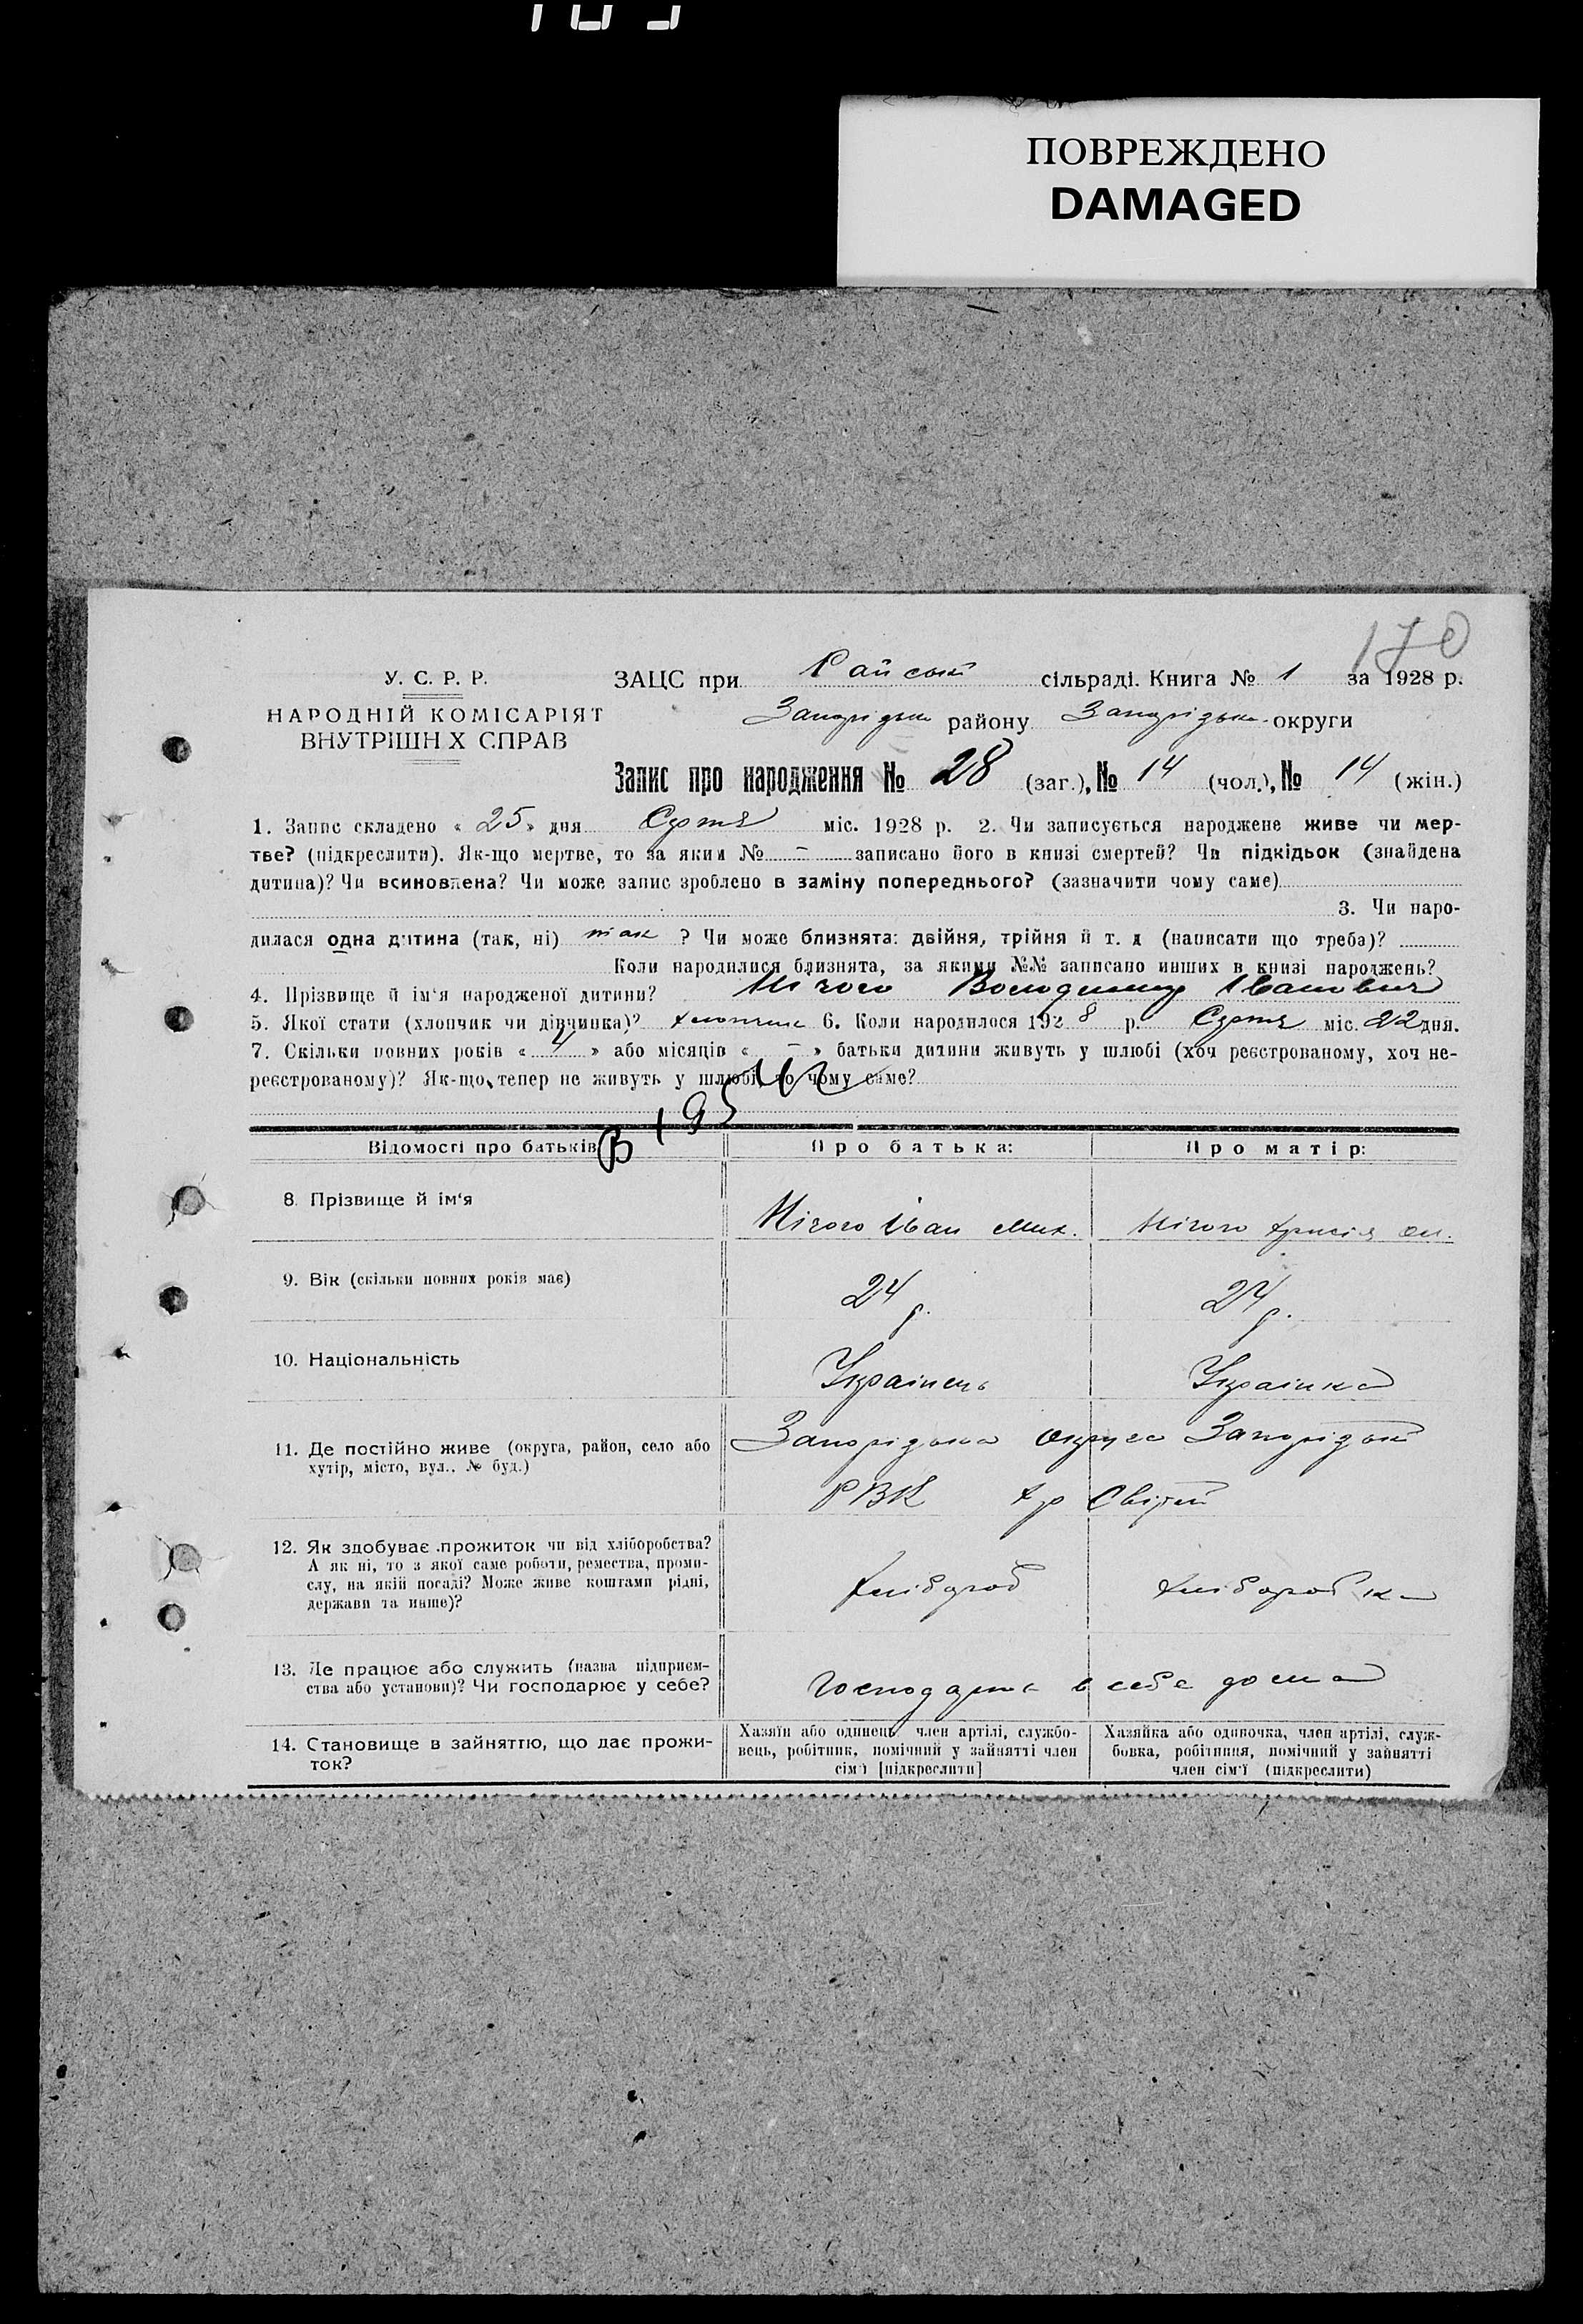 ПОВРЕЖДЕНО
DAMAGED
170
У. С. Р. Р.
НАРОДНІЙ КОМІСАРІЯТ
ВНУТРІШН Х СПРАВ
ЗАЦС при Райській сільраді. Книга № 1 за 1928 р.
Запорізьк району Запорізьк. округи
Запис про народження № 28 (заг.), № 14 (чол.), № 14 (жін.)
1. Запис складено « 25 » дня Серпня міс. 1928 р. 2. Чи записується народжене живе чи мер-
тве? (підкреслити). Як-що мертве, то за яким № – записано його в книзі смертей? Чи підкідьок (знайдена
дитина)? Чи всиновлена? Чи може запис зроблено в заміну попереднього? (зазначити чому саме)
3. Чи наро-
дилася одна дитина (так, ні) так ? Чи може близнята: двійня, трійня й т. д (написати що треба)?
Коли народилися близнята, за якими №№ записано инших в книзі народжень?
4. Прізвище й ім'я народженої дитини? Нічого Володимир Іванович
5. Якої стати (хлопчик чи дівчинка)? хлопчик 6. Коли народилося 1928 р. Серпня міс. 22 дня.
7. Скільки повних років « 4 » або місяців « – » батьки дитини живуть у шлюбі (хоч реєстрованому, хоч не-
реєстрованому)? Як-що тепер не живуть у шлюбі, то чому саме?
Відомості про батьків
Про батька:
Про матір:
8. Прізвище й ім'я
Нічого Іван Мих.
Нічого
9. Вік (скільки повних років має)
24 р.
24 р.
10. Національність
Українець
Українка
11. Де постійно живе (округа, район, село або
хутір, місто, вул., № буд.)
Запорізька округа Запорізький
РВК хр
12. Як здобуває прожиток чи від хліборобства?
А як ні, то з якої саме роботи, ремества, проми-
слу, на якій посаді? Може живе коштами рідні,
держави та инше)?
хлібороб
хліборобка
13. Де працює або служить (назва підприєм-
ства або установи)? Чи господарює у себе?
Господарює в себе дома
14. Становище в зайняттю, що дає прожи-
ток?
Хазяїн або одинець, член артілі, службо-
вець, робітник, помічний у зайнятті член
сім'ї [підкреслити]
Хазяйка або одиночка, член артілі, служ-
бовка, робітниця, помічний у зайнятті
член сім'ї (підкреслити)